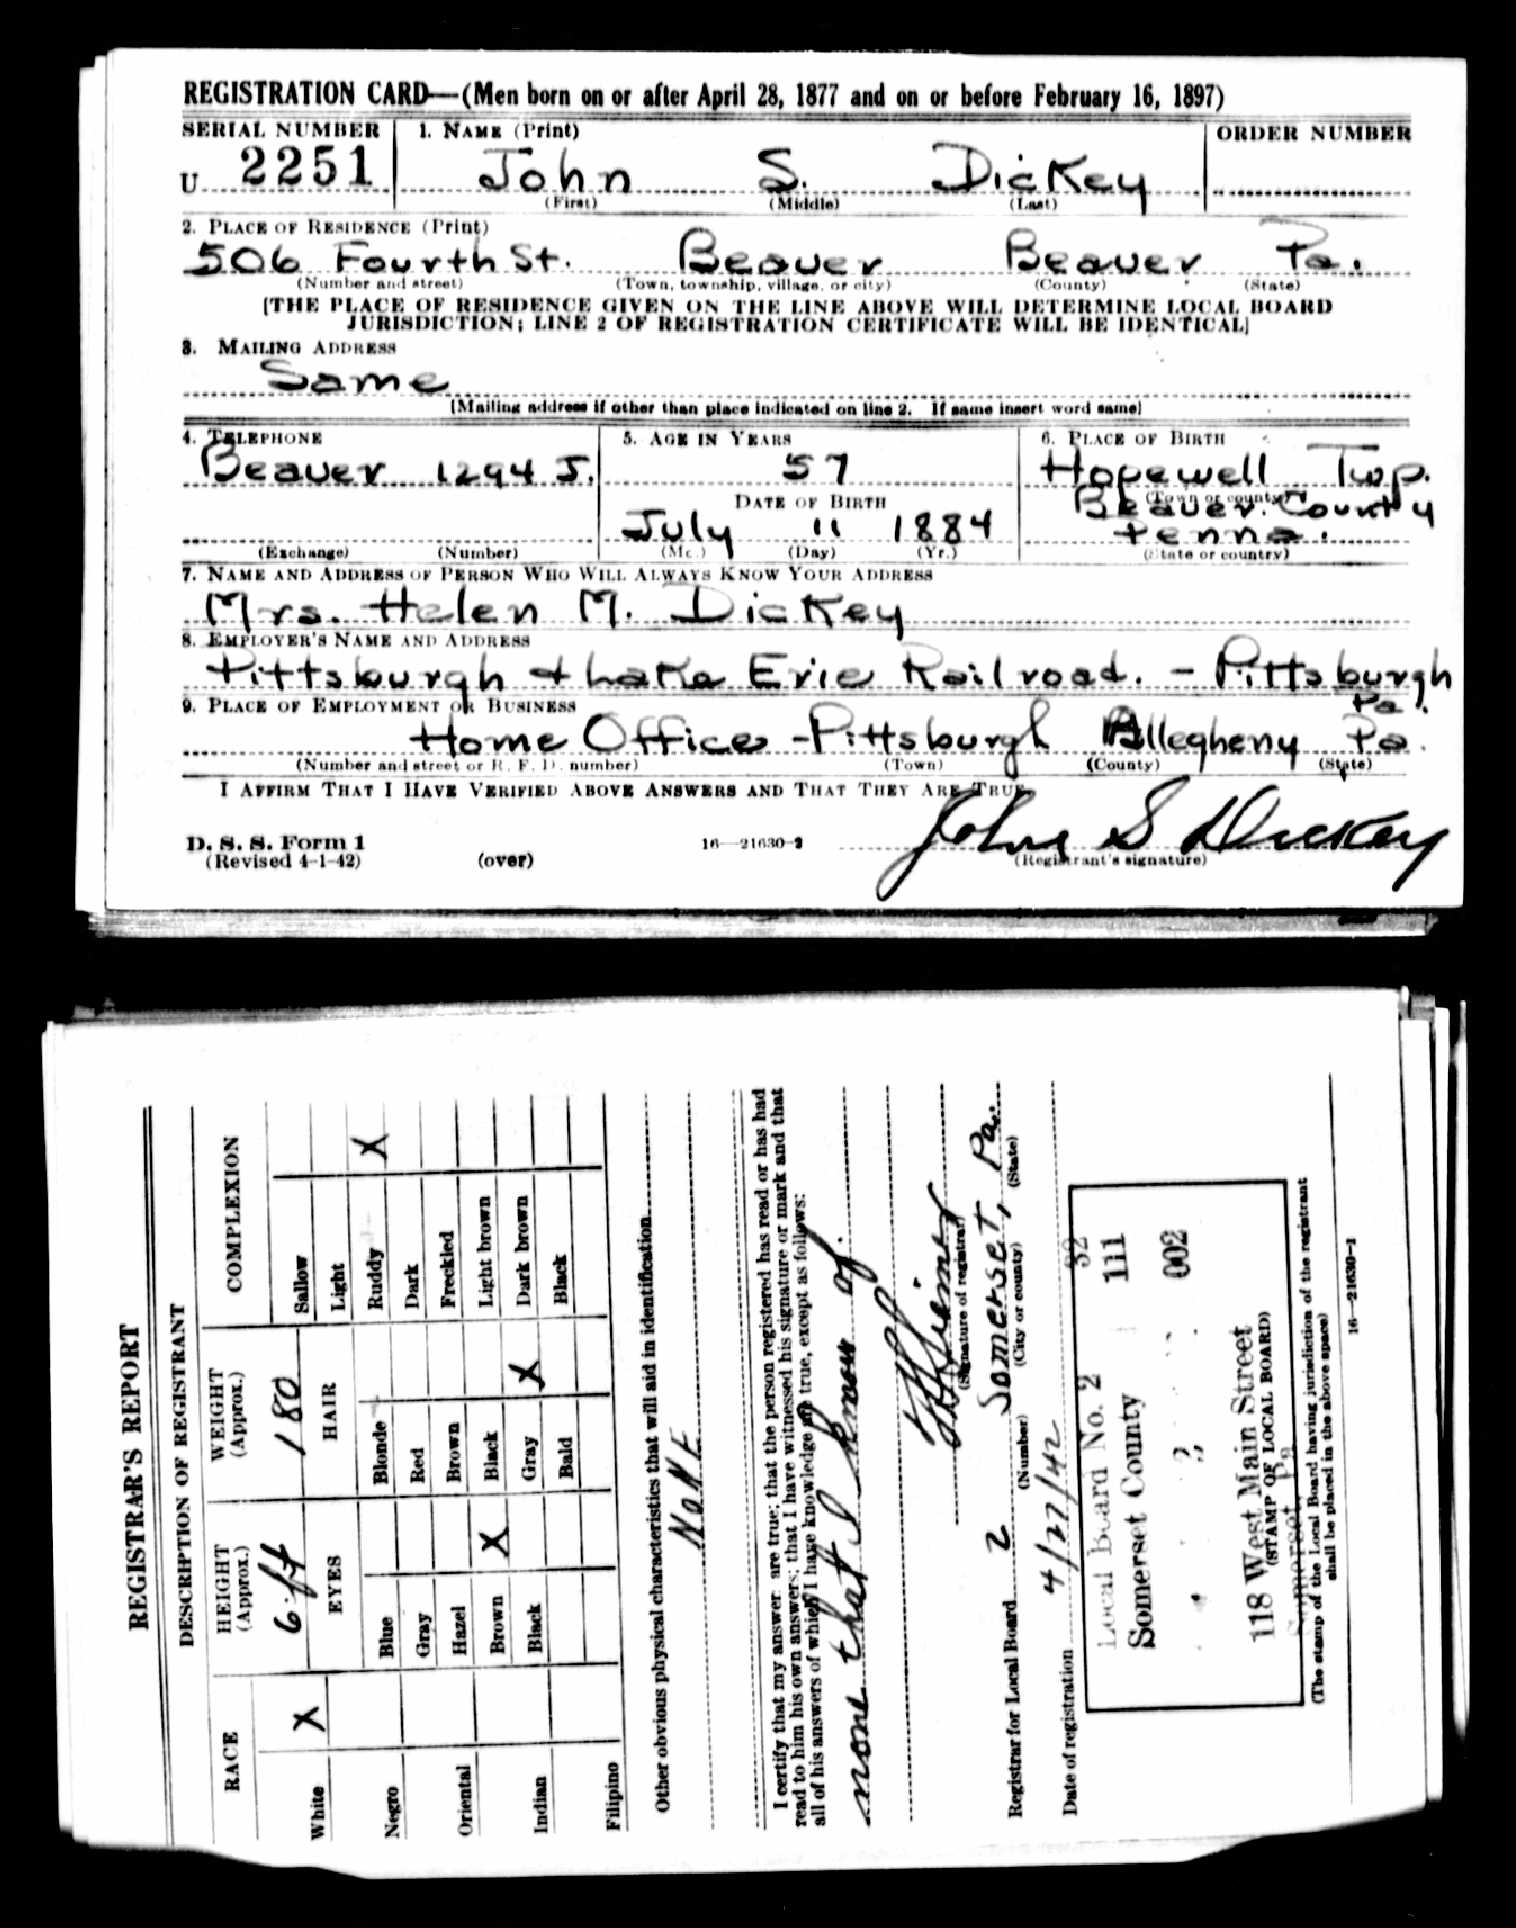 REGISTRATION CARD—(Men born on or after April 28, 1877 and on or before February 16, 1897)
SERIAL NUMBER 1. NAME (Print) ORDER NUMBER
U 2251 John S. Dickey
(First) (Middle) (Last)
2. PLACE OF RESIDENCE (Print)
506 Fourth St. Beaver Beaver Pa.
(Number and street) (Town, township, village, or city) (County) (State)
[THE PLACE OF RESIDENCE GIVEN ON THE LINE ABOVE WILL DETERMINE LOCAL BOARD
JURISDICTION; LINE 2 OF REGISTRATION CERTIFICATE WILL BE IDENTICAL]
3. MAILING ADDRESS
Same
[Mailing address if other than place indicated on line 2. If same insert word same]
4. TELEPHONE 5. AGE IN YEARS 6. PLACE OF BIRTH
Beaver 1294 J. 57 Hopewell Twp.
DATE OF BIRTH (Town or county)
Beaver County
July 11 1884 Penna.
(Exchange) (Number) (Mo.) (Day) (Yr.) (State or country)
7. NAME AND ADDRESS OF PERSON WHO WILL ALWAYS KNOW YOUR ADDRESS
Mrs. Helen M. Dickey
8. EMPLOYER'S NAME AND ADDRESS
Pittsburgh & Lake Erie Railroad. - Pittsburgh
Pa.
9. PLACE OF EMPLOYMENT OR BUSINESS
Home Office - Pittsburgh Allegheny Pa.
(Number and street or R. F. D. number) (Town) (County) (State)
I AFFIRM THAT I HAVE VERIFIED ABOVE ANSWERS AND THAT THEY ARE TRUE.
John S Dickey
D. S. S. Form 1 16—21630-2
(Revised 4-1-42) (over) (Registrant's signature)
REGISTRAR'S REPORT
DESCRIPTION OF REGISTRANT
RACE HEIGHT (Approx.) WEIGHT (Approx.) COMPLEXION
White X 6 ft 180 Sallow
EYES HAIR Light
Negro Blue Blonde Ruddy X
Gray Red Dark
Oriental Hazel Brown Freckled
Brown X Black Light brown
Indian Black Gray X Dark brown
Bald Black
Filipino
Other obvious physical characteristics that will aid in identification
NONE
I certify that my answers are true; that the person registered has read or has had
read to him his own answers; that I have witnessed his signature or mark and that
all of his answers of which I have knowledge are true, except as follows:
none that I know of.
(Signature of registrar)
Registrar for Local Board 2 Somerset, Pa.
(Number) (City or county) (State)
Date of registration 4/27/42
Local Board No. 2 32
Somerset County 111
2 002
118 West Main Street
(STAMP OF LOCAL BOARD)
Somerset, Pa
(The stamp of the Local Board having jurisdiction of the registrant
shall be placed in the above space)
16—21630-2